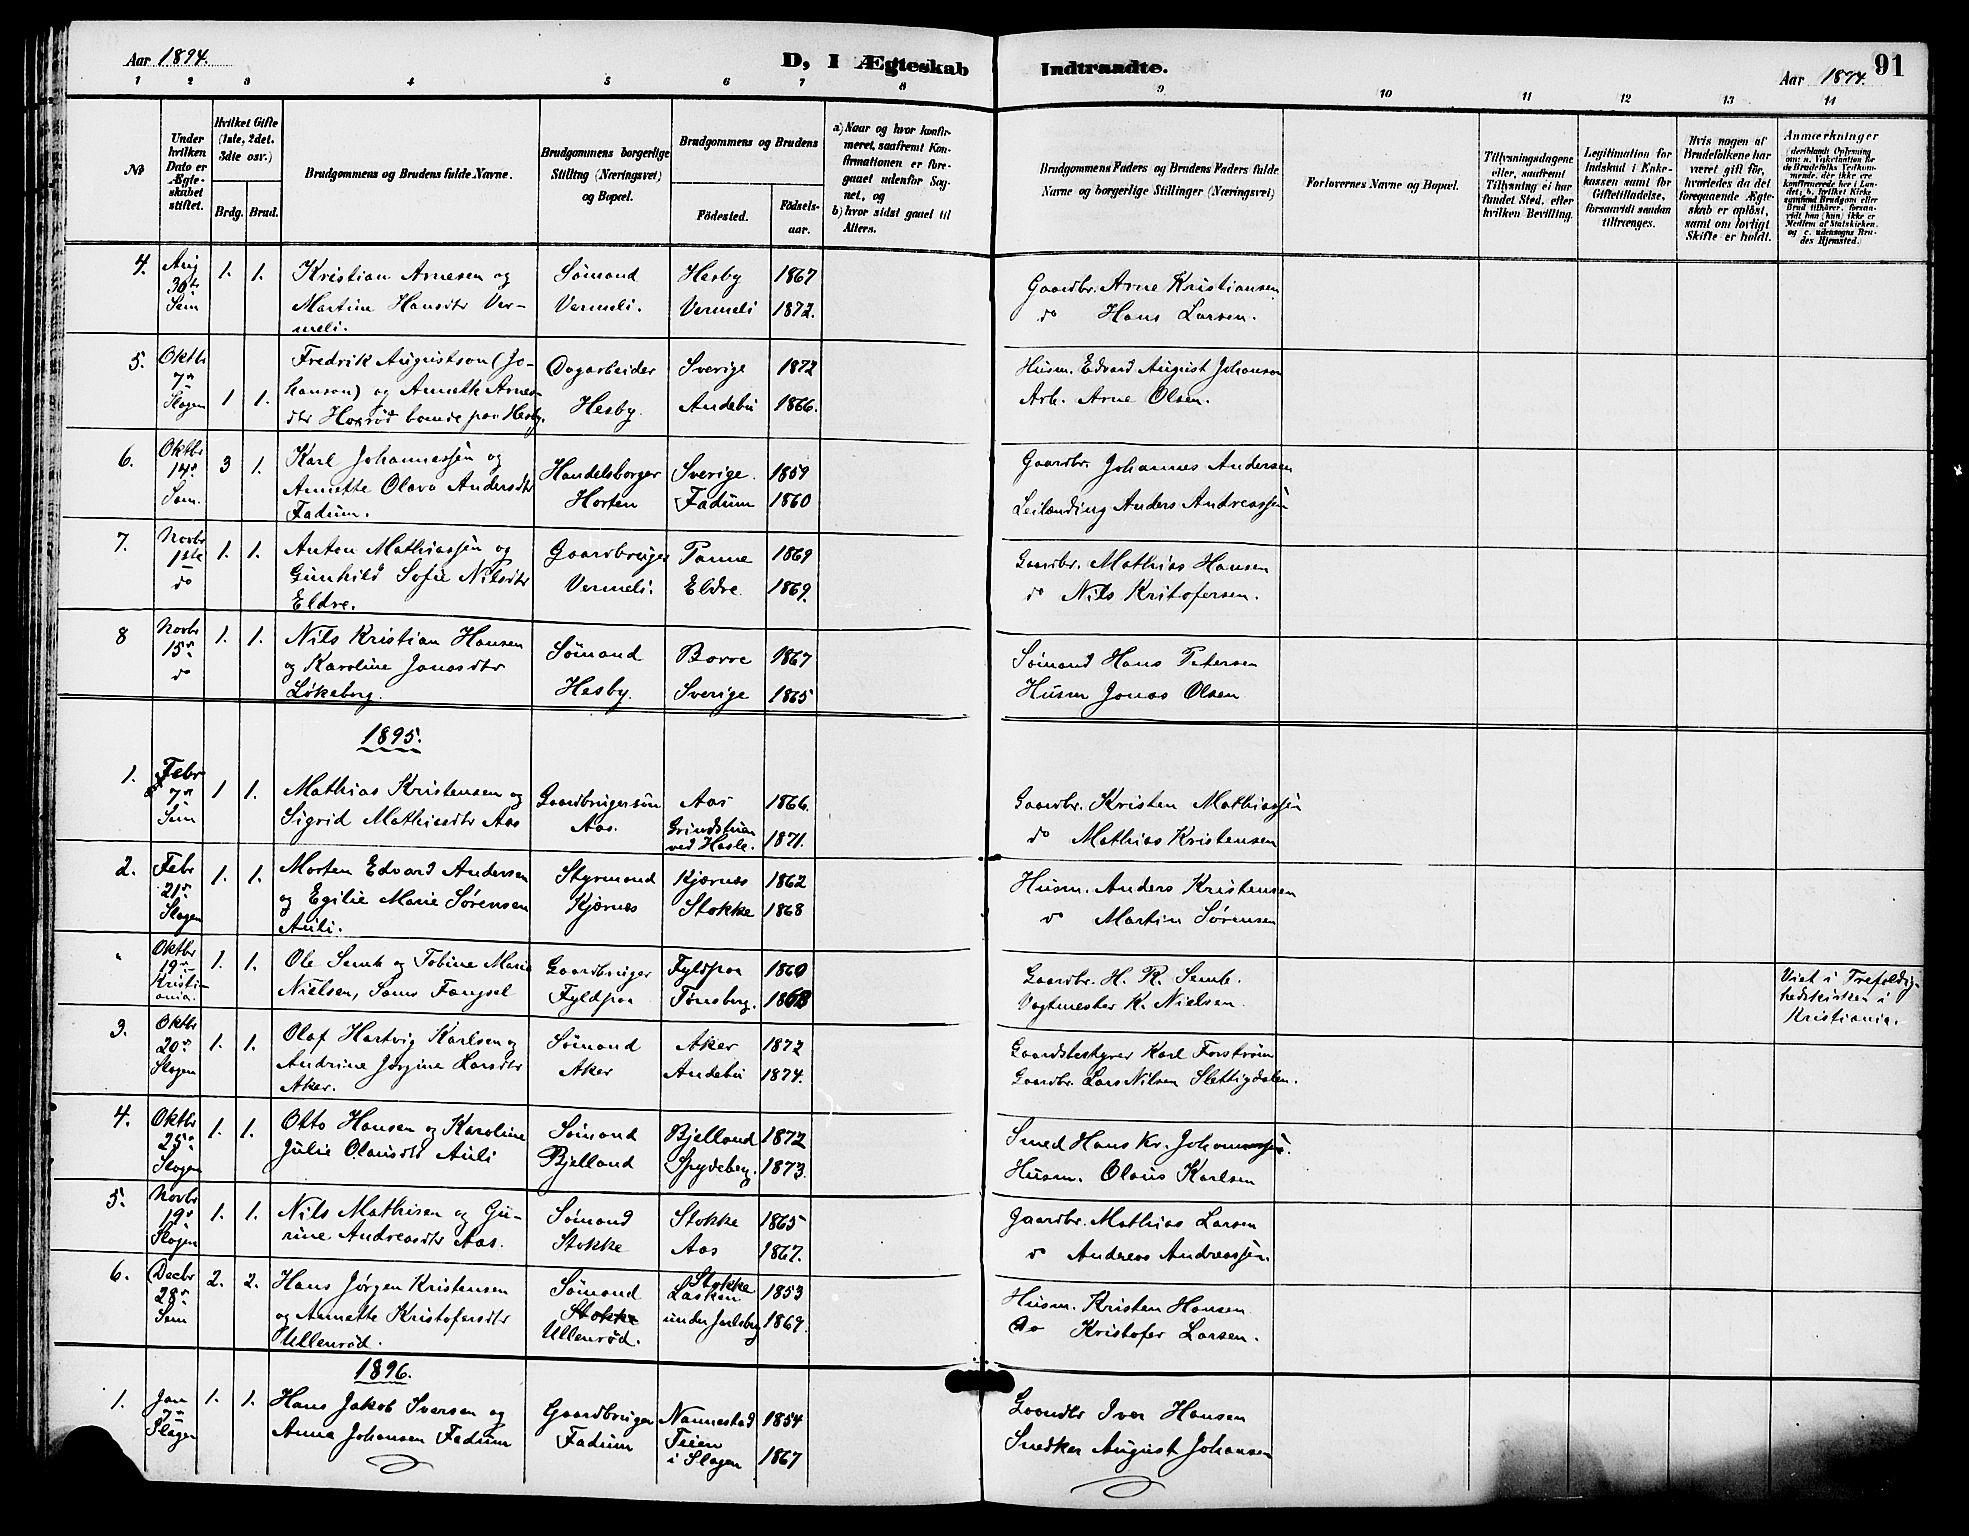 Aar 1894.
D, I Ægteskab Indtraadte.
91
Aar 1894.
1 2 3 4 5 6 7 8 9 10 11 12 13 14
№
Under hvilken Dato er Ægteskabet stiftet.
Hvilket Gifte (1ste, 2det, 3die osv.)
Brdg. Brud.
Brudgommens og Brudens fulde Navne.
Brudgommens borgerlige Stilling (Næringsvei) og Bopæl.
Brudgommens og Brudens
Fødested.
Fødselsaar.
a) Naar og hvor konfirmeret, saafremt Konfirmationen er foregaaet udenfor Sognet, og
b) hvor sidst gaaet til Alters.
Brudgommens Faders og Brudens Faders fulde Navne og borgerlige Stillinger (Næringsvei)
Forlovernes Navne og Bopæl.
Tillysningsdagene eller, saafremt Tillysning ei har fundet Sted, efter hvilken Bevilling.
Legitimation for Indskud i Enkekassen samt for Giftetilladelse, forsaavidt saadan tiltrænges.
Hvis nogen af Brudefolkene har været gift før, hvorledes da det foregaaende Ægteskab er opløst, samt om lovligt Skifte er holdt.
Anmærkninger
4. Aug 30te Sem 1. 1. Kristian Arnesen og Sømand Hesby 1867 Gaardbr. Arne Kristiansen
Martine Hansdtr Ver- Vermeli. Vermeli 1872. do Hans Larsen.
meli.
5. Oktbr 7de Slagen 1 1. Fredrik Augustson (Jo- Dagarbeider Sverige 1872 Husm. Edvard August Johanson
hanson) og Annette Arnes- Hesby. Andebu 1866. Arb. Arne Olsen.
dtr Honrød boende paa Hesby.
6. Oktbr 14de Sem. 3 1. Karl Johannessen og Handelsborger Sverige. 1859 Gaardbr. Johannes Andersen
Annette Olava Andersdtr Horten Fadum 1860 Leilænding Anders Andreassen
Fadum.
7. Novbr 1ste do 1. 1. Anton Mathiassen og Gaardbruger Tanne 1869 Gaardbr. Mathias Hansen
Gunhild Sofie Nilsdtr Vermeli. Eldre. 1869. do Nils Kristofersen.
Eldre.
8 Novbr 15de do 1. 1. Nils Kristian Hansen Sømand Borre 1867 Sømand Hans Petersen
og Karoline Jonasdtr Hesby. Sverige 1865 Husm Jonas Olsen
Løkeberg.
1895.
1. Febr 7de Sem 1 1. Mathias Kristensen og Gaardbrugersøn Aas 1866. Gaardbr. Kristen Mathiassen
Sigrid Mathisdtr Aas Aas. Grindstuen ved Hasle. 1871. do Mathias Kristensen
2. Febr 21de Slagen 1. 1. Morten Edvard Andersen Styrmand Kjærnæs 1862 Husm. Anders Kristensen
og Egilie Marie Sørensen Kjærnæs Stokke 1868 do Martin Sørensen
Auli.
" Oktbr 19de Kristiania. 1. 1. Ole Semb og Tobine Marie Gaardbruger Fyldpaa 1860 Gaardbr. H. R. Semb.
Nielsen, Sems Fængsel Fyldpaa Tønsberg. 1868 Vagtmester K. Nielsen.
Viet i Trefoldig-
hedskirken i
Kristiania.
3. Oktbr 20de Slagen 1. 1. Olaf Hartvig Karlsen og Sømand Aker 1872 Gaardsbestyrer Karl Forstrøm
Andrine Jørgine Larsdtr Aker Andebu 1874. Gaardbr. Lars Nilsen Slettigdalen.
Aker.
4. Oktbr 25de Slagen 1. 1. Otto Hansen og Karoline Sømand Bjelland 1872 Smed Hans Kr. Johannessen.
Julie Olausdtr Auli Bjelland Spydeberg. 1873. Husm. Olaus Karlsen
5. Novbr 19de Slagen 1. 1. Nils Mathisen og Gu- Sømand Stokke 1865 Gaardbr. Mathias Larsen
rine Andreasdtr Aas. Stokke Aas 1867. do Andreas Andreassen
6. Decbr 28de Sem 2. 2. Hans Jørgen Kristensen Sømand Stokke 1853 Husm. Kristen Hansen
og Annette Kristofersdtr Stokke Lasken under Jarlsberg 1869. do Kristofer Larsen.
Ullenrød. Ullenrød.
1896.
1. Jan 7de Slagen 1. 1. Hans Jakob Iversen og Gaardbruger Nannestad 1854 Gaardbr Iver Hansen
Anna Johansen Fadum Fadum Teien i Slagen 1867 Snedker August Johansen